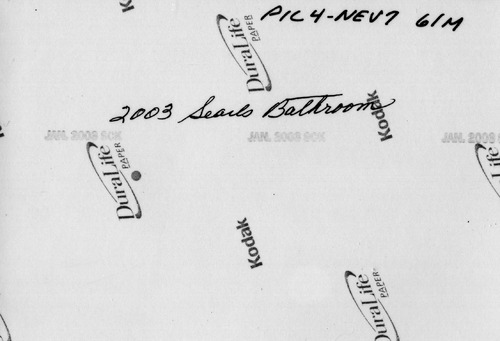 K
DuraLife
PAPER
PIC4-NEV7 6/M
2003 Searls Bathroom
Kodak
JAN. 2003 SCK
JAN. 2003 SCK
JAN. 2003
DuraLife
PAPER
Life
Kodak
DuraLife
PAPER